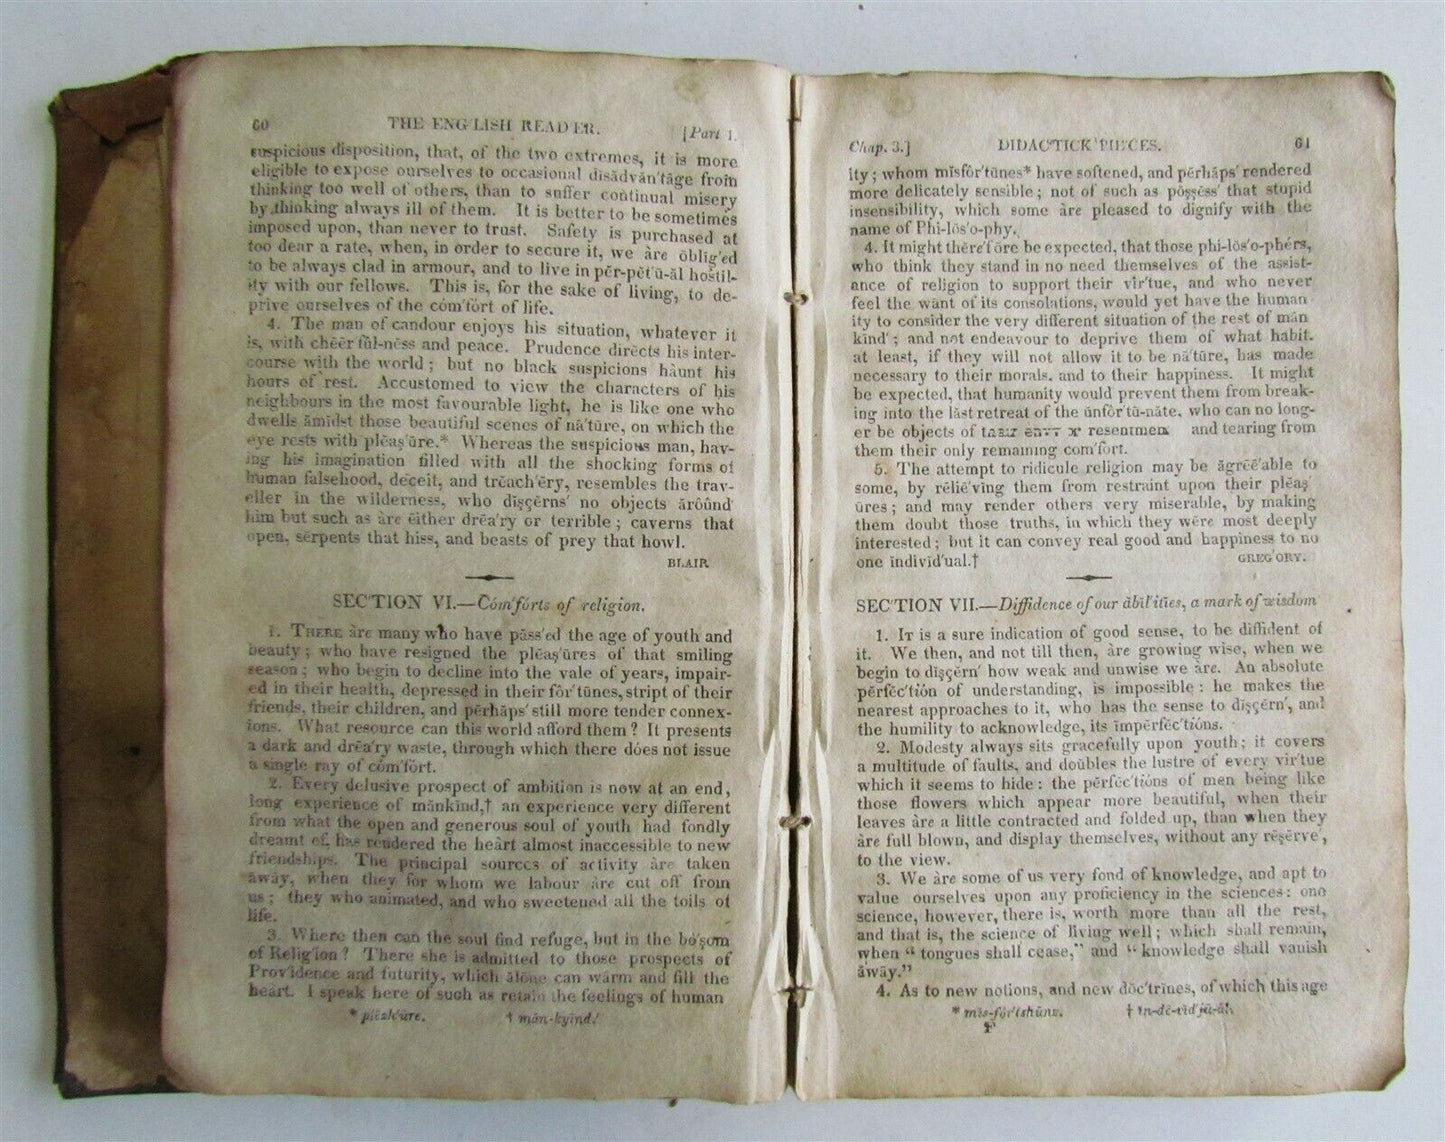 60 THE ENG'LISH READ'ER. [Part 1.
suspicious disposition, that, of the two extremes, it is more
eligible to expose ourselves to occasional disădvăn'tăge from
thinking too well of others, than to suffer continual misery
by thinking always ill of them. It is better to be sometimes
imposed upon, than never to trust. Safety is purchased at
too dear a rate, when, in order to secure it, we àre ŏblīg'ed
to be always clad in armour, and to live in pĕr-pĕt'ū-ăl hostil-
ity with our fellows. This is, for the sake of living, to de-
prive ourselves of the cóm'fórt of life.
4. The man of candour enjoys his situation, whatever it
is, with chēēr'fŭl-nĕss and peace. Prudence dīrĕcts his inter-
course with the world; but no black suspicions hàunt his
hours of rest. Accustomed to view the characters of his
neighbours in the most favourable light, he is like one who
dwells ămĭdst those beautiful scenes of nā'tūre, on which the
eye rests with plĕaş'ūre.* Whereas the suspicious man, hav-
ing his imagination filled with all the shocking forms of
human falsehood, deceit, and trĕach'ĕry, resembles the trav-
eller in the wilderness, who dĭşçĕrns' no objects ărôûnd
him but such as àre ēither drēa'ry or terrible; caverns that
open, sĕrpents that hiss, and beasts of prey that howl.
BLAIR.
SEC'TION VI.—Cóm'fórts of religion.
1. THERE àre many who have păss'ed the age of youth and
beauty; who have resigned the plĕaş'ūres of that smiling
season; who begin to decline into the vale of years, impair-
ed in their health, depressed in their fŏr'tūnes, stript of their
friends, their children, and pĕrhăps' still more tender connex-
ions. What resource can this world afford them? It presents
a dark and drēa'ry waste, through which there dóes not issue
a single ray of cóm'fórt.
2. Every delusive prospect of ambition is now at an end,
long experience of mănkīnd,† an experience very different
from what the open and generous soul of youth had fondly
dreamt of, has rendered the heàrt almost inaccessible to new
friendships. The principal sources of activity àre taken
ăwāy, when they for whom we labour àre cut off from
us; they who animated, and who sweetened all the toils of
life.
3. Where then can the soul find refuge, but in the bó'şom
of Relig'ion? There she is admitted to those prospects of
Prov'idence and futurity, which ălōne can wàrm and fill the
heàrt. I speak here of such as retain the feelings of human
* plĕzh'ūre. † măn-kyīnd.'
Chap. 3.] DIDAC'TICK PIECES. 61
ity; whom mĭsfŏr'tūnes* have softened, and pĕrhăps' rendered
more delicately sensible; not of such as pŏşşĕss' that stupid
insensibility, which some àre pleased to dignify with the
name of Phi-lŏs'o-phy.
4. It might thĕre'fōre be expected, that those phi-lŏs'o-phĕrs,
who think they stand in no need themselves of the assist-
ance of religion to support their vĭr'tue, and who never
feel the want of its consolations, would yet have the human-
ity to consider the very different situation of the rest of măn
kīnd'; and not endeavour to deprive them of what habit,
at least, if they will not allow it to be nā'tūre, has made
necessary to their morals, and to their happiness. It might
be expected, that humanity would prevent them from break-
ing into the lăst retreat of the ŭnfŏr'tū-nāte, who can no long-
er be objects of resentment and tearing from
them their only remaining com'fort.
5. The attempt to ridicule religion may be ăgrēē'able to
some, by rēliē'ving them from restraint upon their plĕaş'
ūres; and may render others very miserable, by making
them doubt those truths, in which they wĕre most deeply
interested; but it can convey real good and happiness to no
one ĭndĭvĭd'ual.† GREG'ORY.
SEC'TION VII.—Diffidence of our àbĭl'itĭes, a mark of wisdom
1. IT is a sure indication of good sense, to be diffident of
it. We then, and not till then, àre growing wise, when we
begin to dĭşçĕrn' how weak and unwise we àre. An absolute
pĕrfĕc'tión of understanding, is impossible: he makes the
nearest approaches to it, who has the sense to dĭşçĕrn', and
the humility to acknowledge, its ĭmpĕrfĕc'tións.
2. Modesty always sits gracefully upon youth; it covers
a multitude of faults, and doŭbles the lustre of every vir'tue
which it seems to hide: the pĕrfĕc'tións of men being like
those flowers which appear more beautiful, when their
leaves àre a little contracted and folded up, than when they
àre full blown, and display themselves, without any rĕşĕrve',
to the view.
3. We àre some of us very fond of knowledge, and apt to
value ourselves upon any proficiency in the sciences: one
science, however, there is, worth more than all the rest,
and that is, the science of living well; which shall remain,
when “ tongues shall cease,” and “ knowledge shall vanish
ăwāy.”
4. As to new notions, and new dŏc'trines, of which this age
* mĭs-fŏr'tshūns. † ĭn-dē-vĭd'jū-ăl.
F